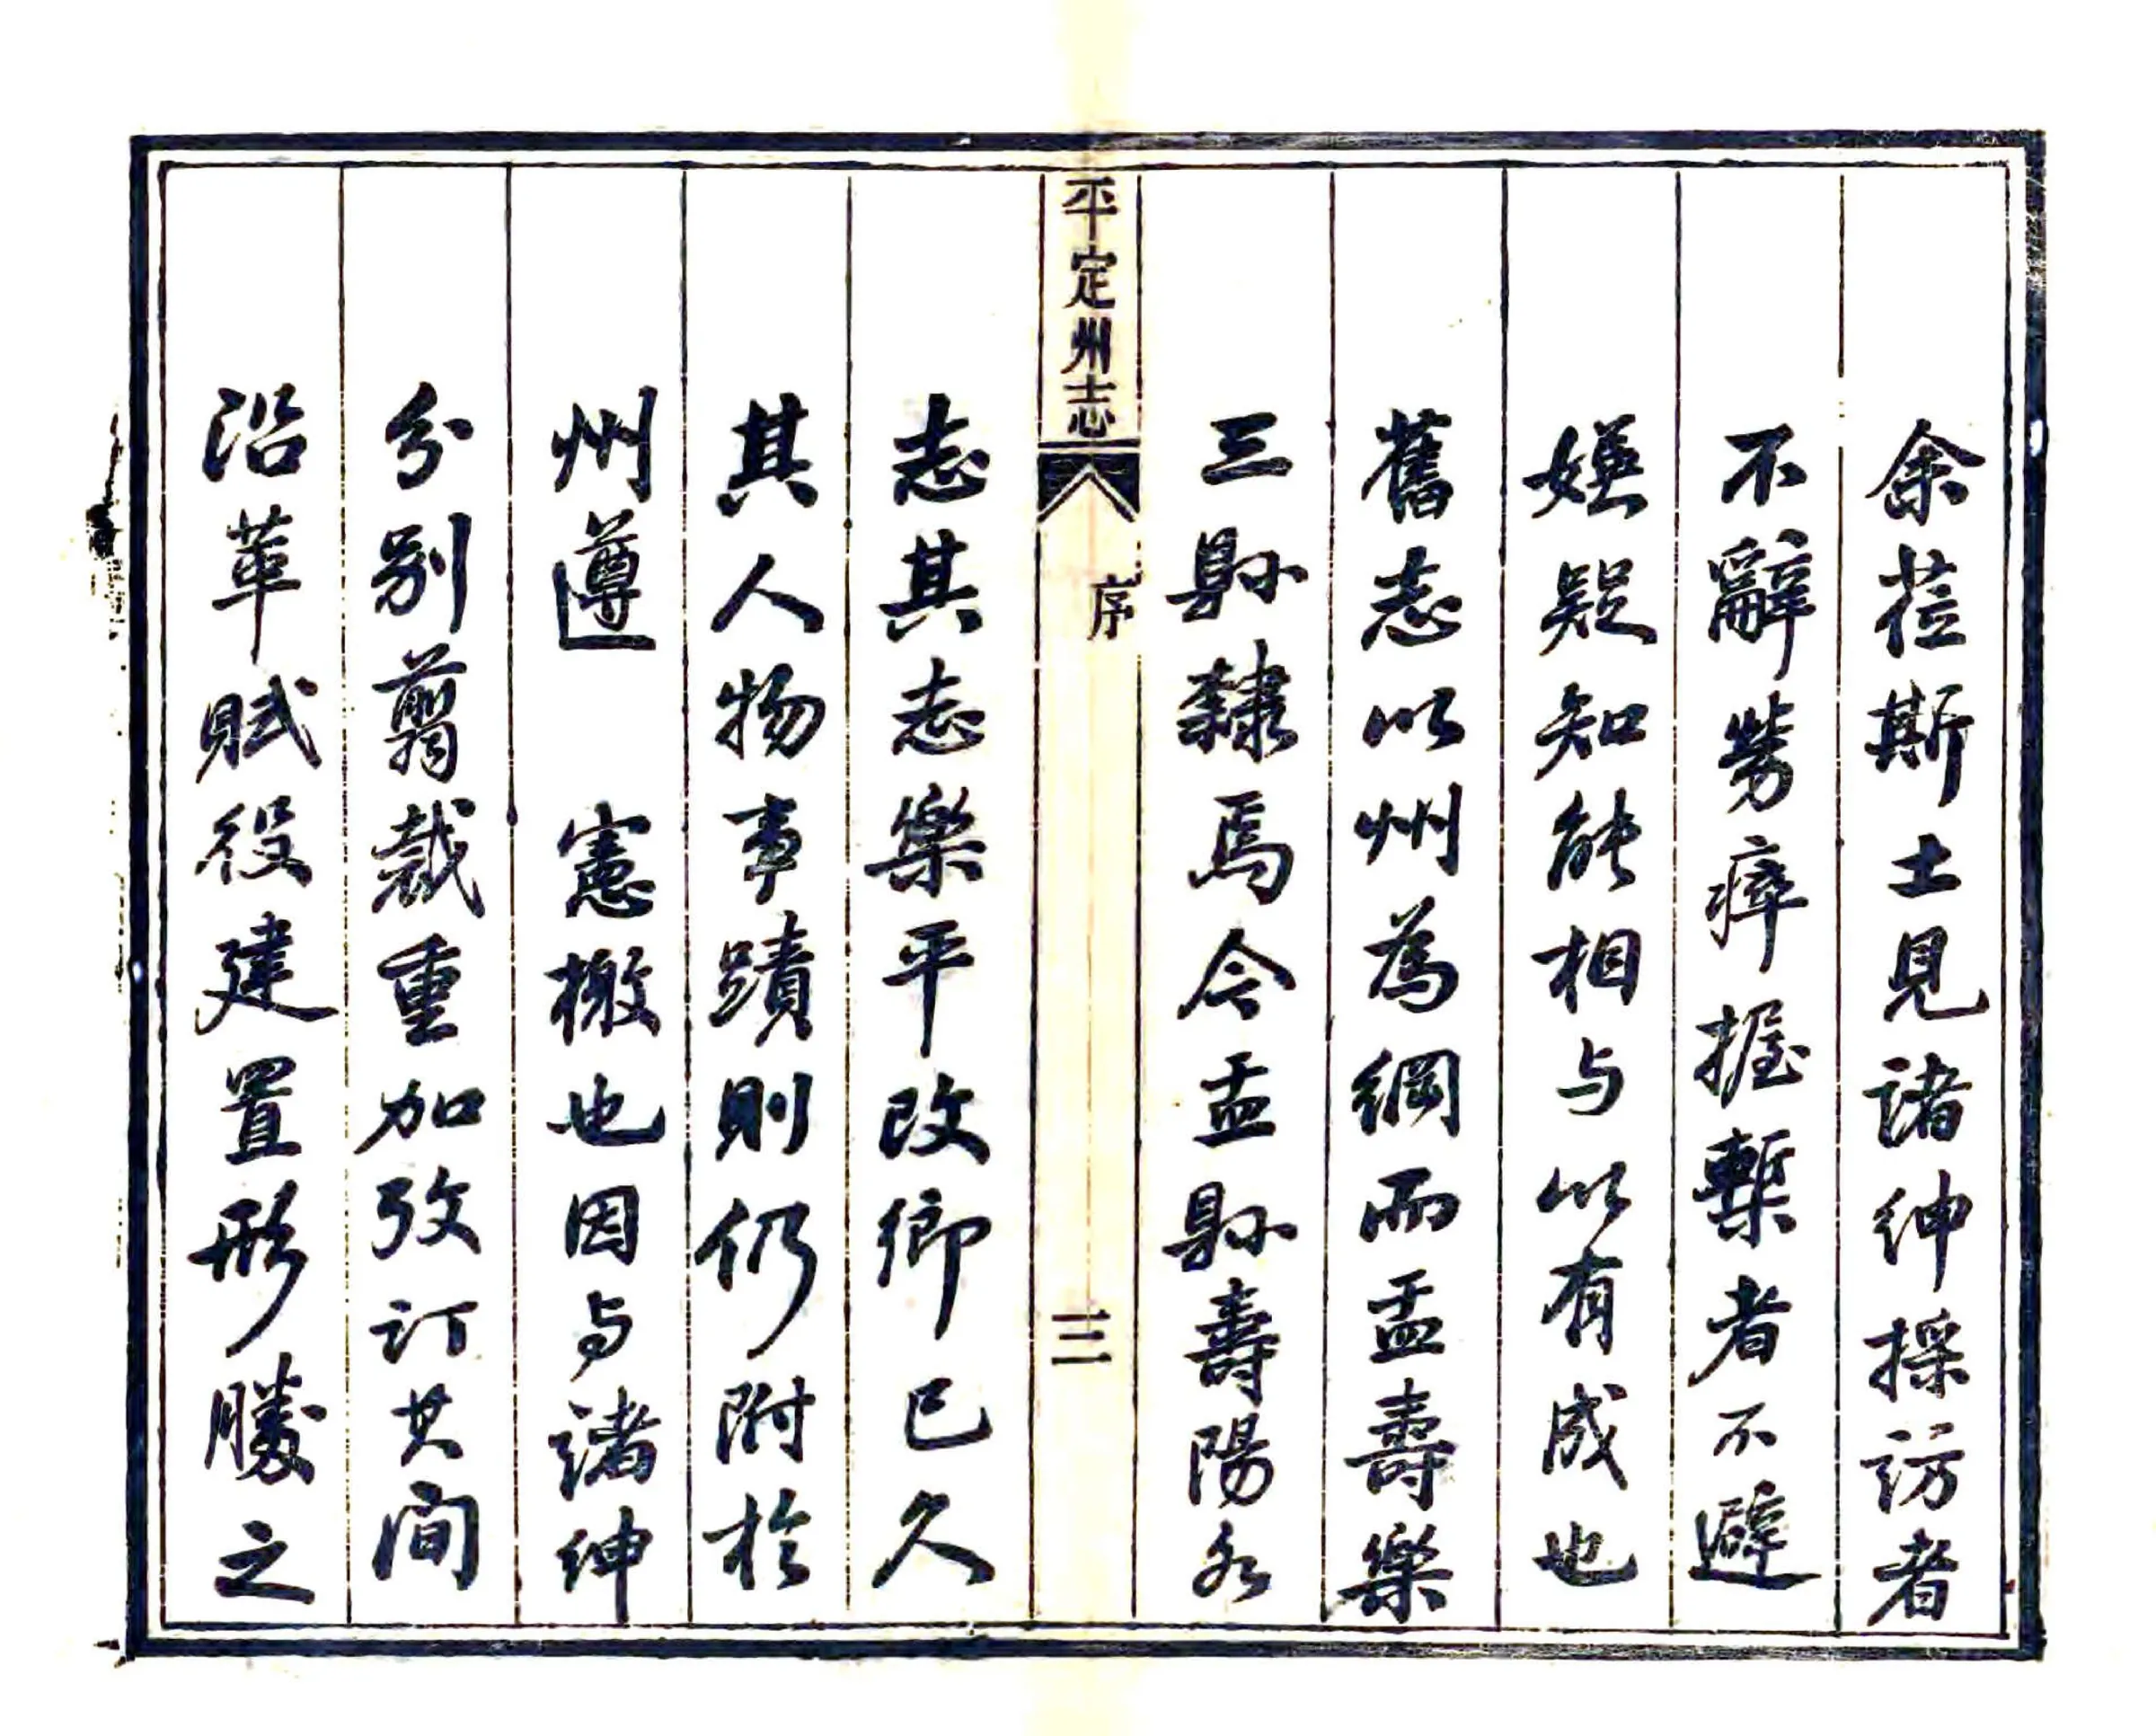 余蒞斯土見諸紳採訪者
不辭勞瘁握槧者不避
嫌疑知能相与以有成也
舊志以州為綱而盂壽樂
三縣隸焉今盂縣壽陽各
平定州志
序
三
志其志樂平改鄉已久
其人物事蹟則仍附於
州遵 憲檄也因与諸紳
分别翦裁重加攷訂其间
沿革賦役建置形勝之